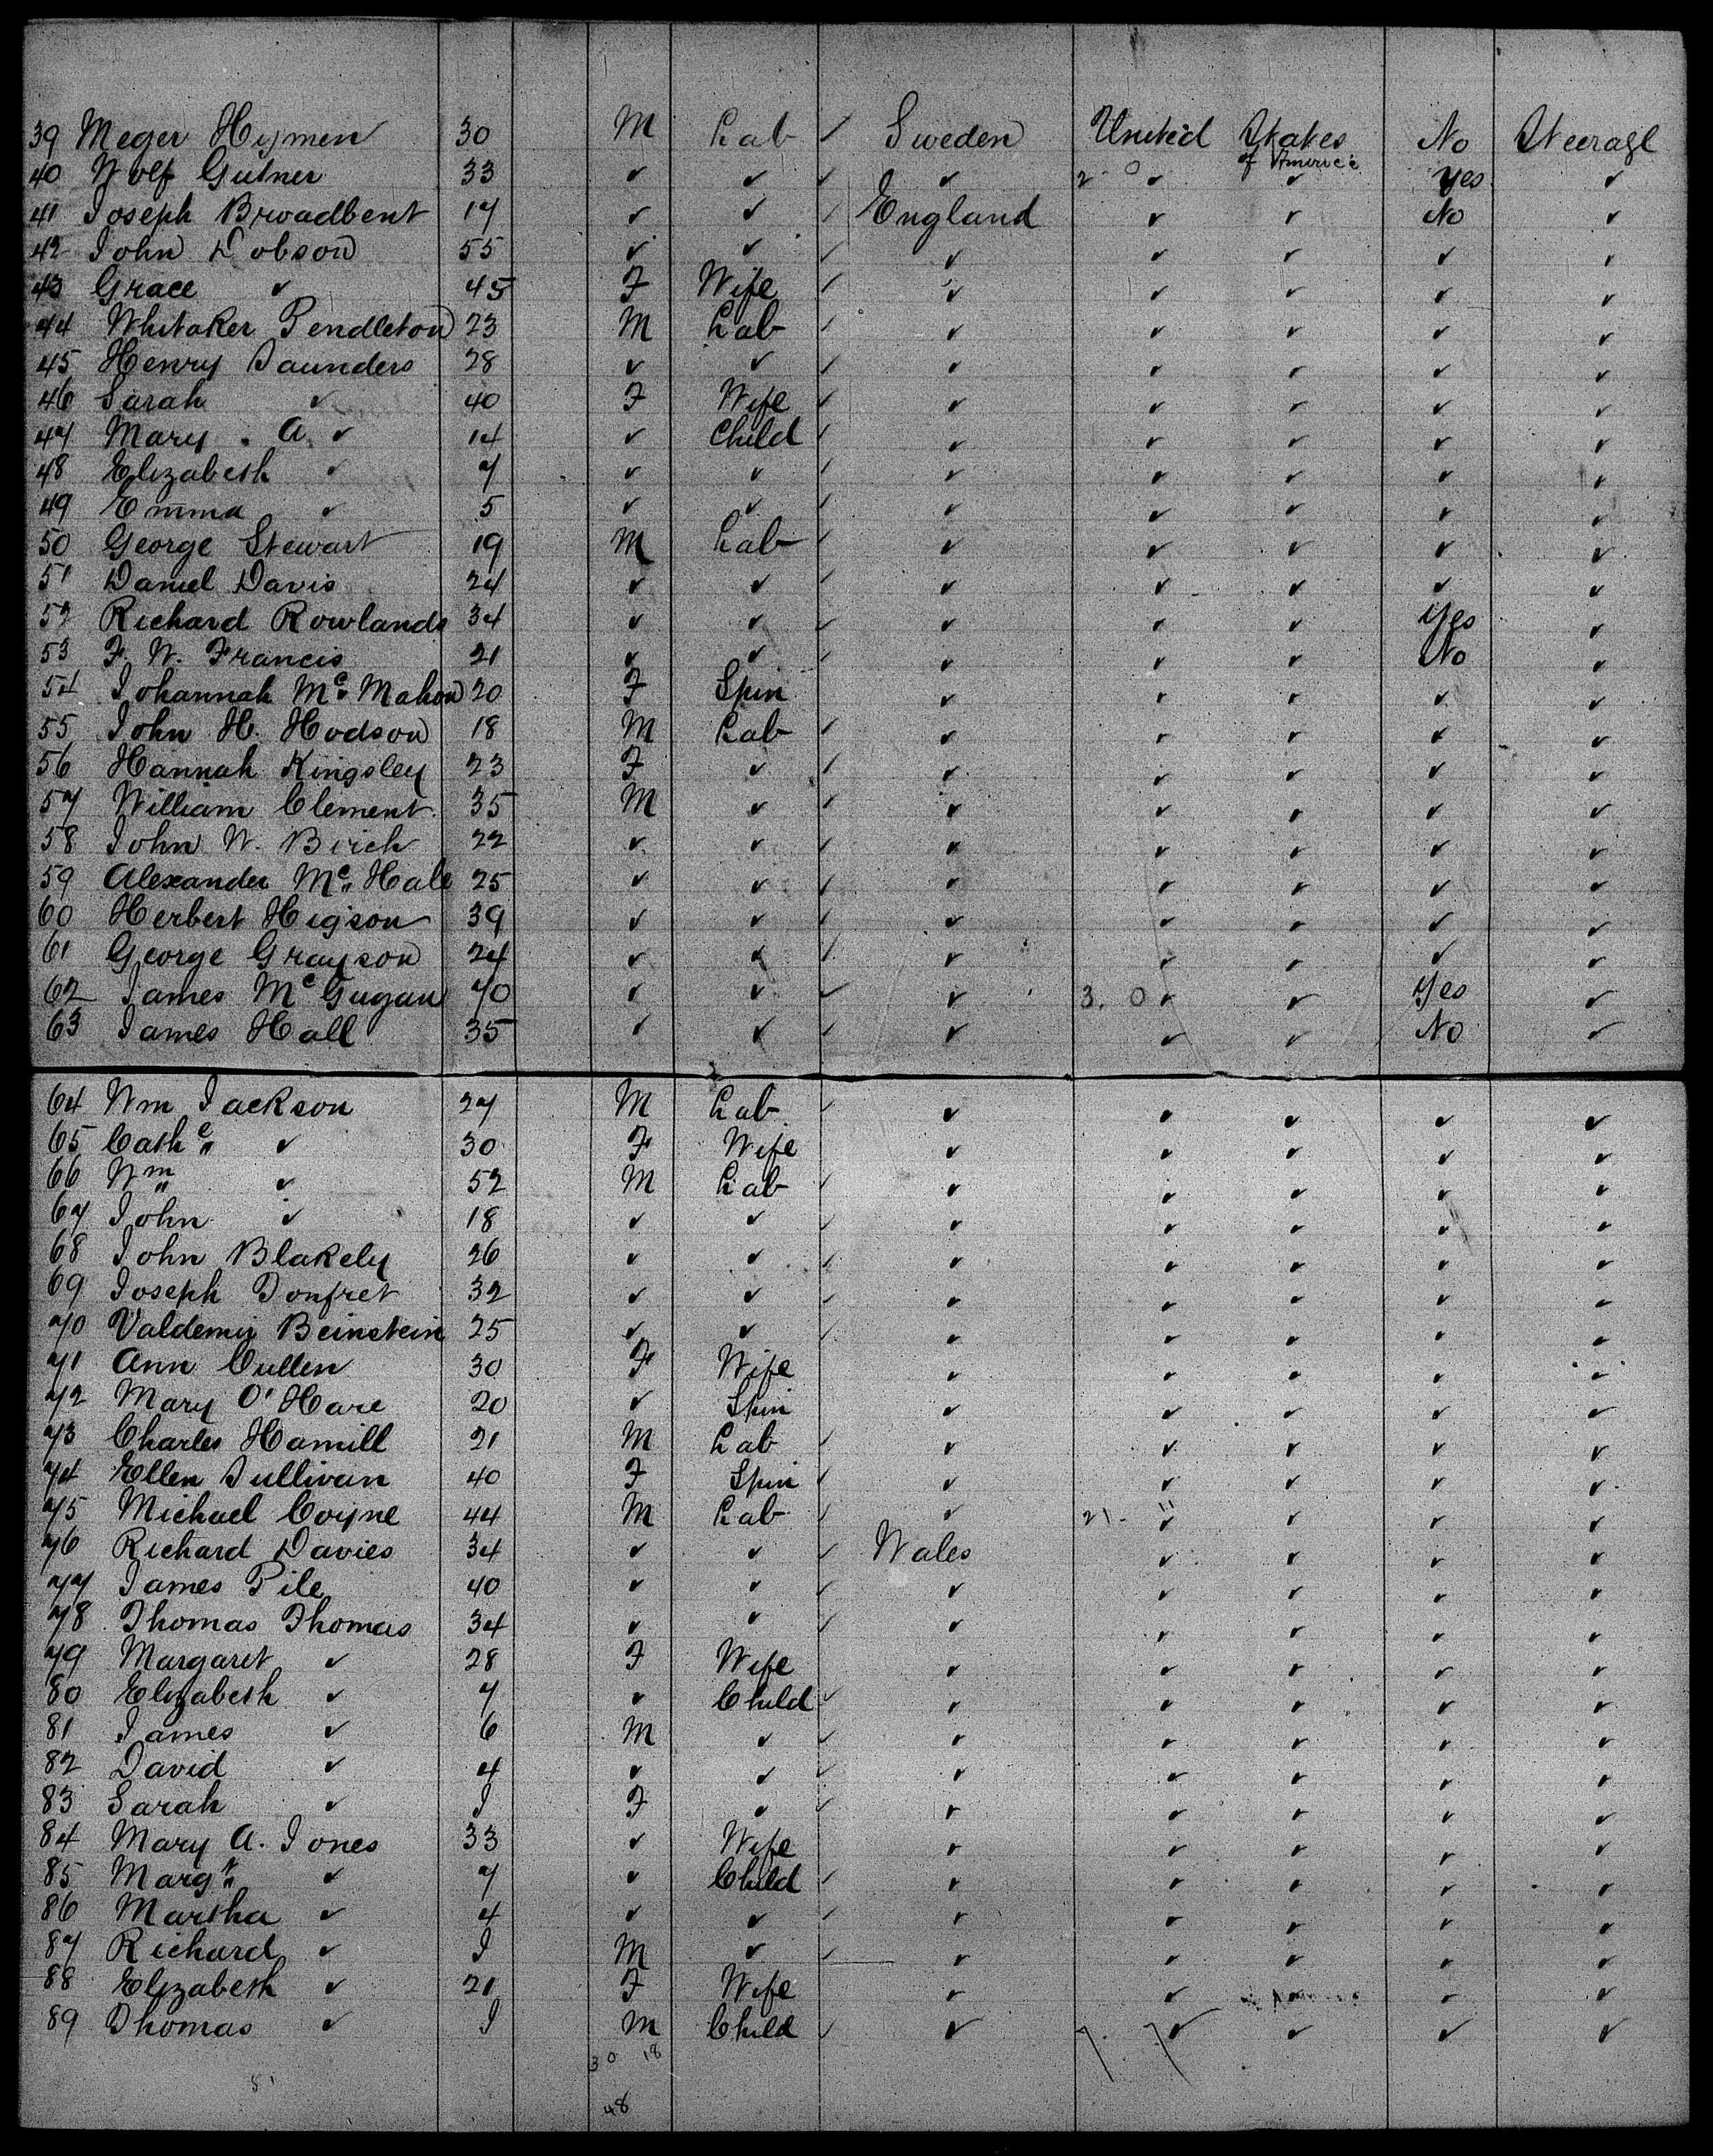 39 Meger Hymen 30 M Lab ✓ Sweden United States of America No Steerage
40 Wolf Gutner 33 ✓ ✓ ✓ ✓ 2 0 ✓ ✓ Yes ✓
41 Joseph Broadbent 17 ✓ ✓ ✓ England ✓ ✓ No ✓
42 John Dobson 55 ✓ ✓ ✓ ✓ ✓ ✓ ✓ ✓
43 Grace ✓ 45 F Wife ✓ ✓ ✓ ✓ ✓ ✓
44 Whitaker Pendleton 23 M Lab ✓ ✓ ✓ ✓ ✓ ✓
45 Henry Saunders 28 ✓ ✓ ✓ ✓ ✓ ✓ ✓ ✓
46 Sarah ✓ 40 F Wife ✓ ✓ ✓ ✓ ✓ ✓
47 Mary . A. ✓ 14 ✓ Child ✓ ✓ ✓ ✓ ✓ ✓
48 Elizabeth ✓ 7 ✓ ✓ ✓ ✓ ✓ ✓ ✓ ✓
49 Emma ✓ 5 ✓ ✓ ✓ ✓ ✓ ✓ ✓ ✓
50 George Stewart 19 M Lab ✓ ✓ ✓ ✓ ✓ ✓
51 Daniel Davis 24 ✓ ✓ ✓ ✓ ✓ ✓ ✓ ✓
52 Richard Rowlands 34 ✓ ✓ ✓ ✓ ✓ ✓ Yes ✓
53 F. W. Francis 21 ✓ ✓ ✓ ✓ ✓ ✓ No ✓
54 Johannah Mc Mahon 20 F Spin ✓ ✓ ✓ ✓ ✓
55 John H. Hodson 18 M Lab ✓ ✓ ✓ ✓ ✓ ✓
56 Hannah Kingsley 23 F ✓ ✓ ✓ ✓ ✓ ✓ ✓
57 William Clement 35 M ✓ ✓ ✓ ✓ ✓ ✓ ✓
58 John W. Birch 22 ✓ ✓ ✓ ✓ ✓ ✓ ✓ ✓
59 Alexander Mc Hale 25 ✓ ✓ ✓ ✓ ✓ ✓ ✓ ✓
60 Herbert Higson 39 ✓ ✓ ✓ ✓ ✓ ✓ ✓ ✓
61 George Grayson 24 ✓ ✓ ✓ ✓ ✓ ✓ ✓ ✓
62 James Mc Gugan 70 ✓ ✓ ✓ ✓ 3. 0 ✓ ✓ Yes ✓
63 James Hall 35 ✓ ✓ ✓ ✓ ✓ ✓ No ✓
64 Wm Jackson 27 M Lab ✓ ✓ ✓ ✓ ✓ ✓
65 Cathe ✓ 30 F Wife ✓ ✓ ✓ ✓ ✓
66 Wm ✓ 52 M Lab ✓ ✓ ✓ ✓ ✓ ✓
67 John ✓ 18 ✓ ✓ ✓ ✓ ✓ ✓ ✓ ✓
68 John Blakely 26 ✓ ✓ ✓ ✓ ✓ ✓ ✓ ✓
69 Joseph 32 ✓ ✓ ✓ ✓ ✓ ✓ ✓ ✓
70 Beinstein 25 ✓ ✓ ✓ ✓ ✓ ✓ ✓ ✓
71 Ann Cullen 30 F Wife ✓ ✓ ✓ ✓ ✓
72 Mary O'Hare 20 ✓ Spin ✓ ✓ ✓ ✓ ✓
73 Charles Hamill 21 M Lab ✓ ✓ ✓ ✓ ✓ ✓
74 Ellen Sullivan 40 F Spin ✓ ✓ ✓ ✓ ✓ ✓
75 Michael Coyne 44 M Lab ✓ ✓ 21 - " ✓ ✓ ✓ ✓
76 Richard Davies 34 ✓ ✓ ✓ Wales ✓ ✓ ✓ ✓
77 James Pile 40 ✓ ✓ ✓ ✓ ✓ ✓ ✓ ✓
78 Thomas Thomas 34 ✓ ✓ ✓ ✓ ✓ ✓ ✓ ✓
79 Margaret ✓ 28 F Wife ✓ ✓ ✓ ✓ ✓
80 Elizabeth ✓ 7 ✓ Child ✓ ✓ ✓ ✓ ✓ ✓
81 James ✓ 6 M ✓ ✓ ✓ ✓ ✓ ✓ ✓
82 David ✓ 4 ✓ ✓ ✓ ✓ ✓ ✓ ✓ ✓
83 Sarah ✓ I F ✓ ✓ ✓ ✓ ✓ ✓ ✓
84 Mary A. Jones 33 ✓ Wife ✓ ✓ ✓ ✓ ✓
85 Margt ✓ 7 ✓ Child ✓ ✓ ✓ ✓ ✓ ✓
86 Martha ✓ 4 ✓ ✓ ✓ ✓ ✓ ✓ ✓ ✓
87 Richard ✓ I M ✓ ✓ ✓ ✓ ✓ ✓ ✓
88 Elizabeth ✓ 21 F Wife ✓ ✓ ✓ ✓ ✓
89 Thomas ✓ I M Child ✓ ✓ 7. 7 ✓ ✓ ✓ ✓
30 18
48